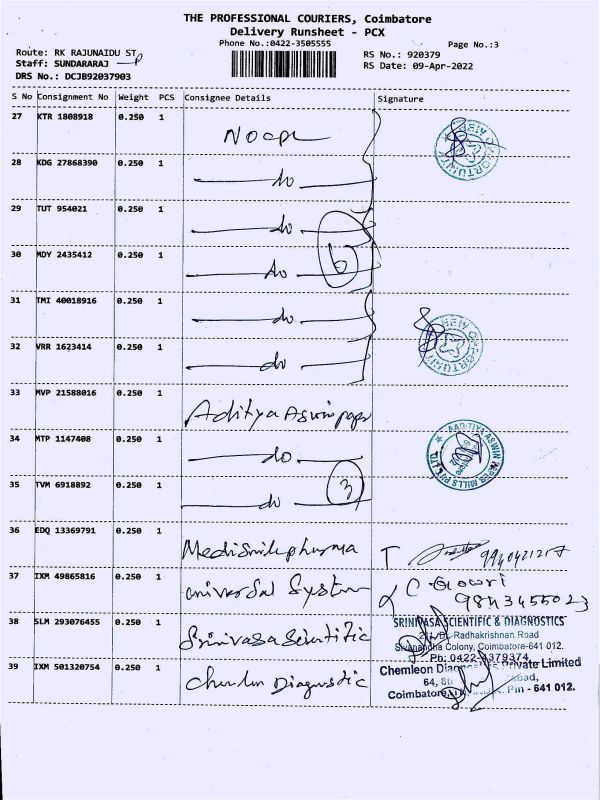 THE PROFESSIONAL COURIERS, Coimbatore
Delivery Runsheet - PCX
Phone No.:0422-3505555
Page No.:3
Route: RK RAJUNAIDU ST
RS No.: 920379
Staff: SUNDARARAJ
RS Date: 09-Apr-2022
DRS No.: DCJB92037903
S No Consignment No Weight PCS Consignee Details Signature
27 KTR 1808918 0.250 1
28 KDG 27868390 0.250 1 do
29 TUT 954021 0.250 1 do
6
30 MDY 2435412 0.250 1 do
31 TMI 40018916 0.250 1 do
NEW OPPORTUNITY
32 VRR 1623414 0.250 1 do
33 MVP 21588016 0.250 1 Aditya Aswin paper
34 MTP 1147408 0.250 1 do
AADITYA ASWIN PAPER MILLS PVT LTD
3
35 TVM 6918892 0.250 1 do
36 EDQ 13369791 0.250 1 Medismilepharma
37 IXM 49865816 0.250 1 universal System C. Gowri
38 SLM 293076455 0.250 1 Srinivasa Scientific
SRINIVASA SCIENTIFIC & DIAGNOSTICS
Radhakrishnan Road
Colony, Coimbatore-641 012.
Ph: 0422 4379374
39 IXM 501320754 0.250 1 Diagnostic
Chemleon Diagnostics Private Limited
64,
Coimbatore Pin - 641 012.